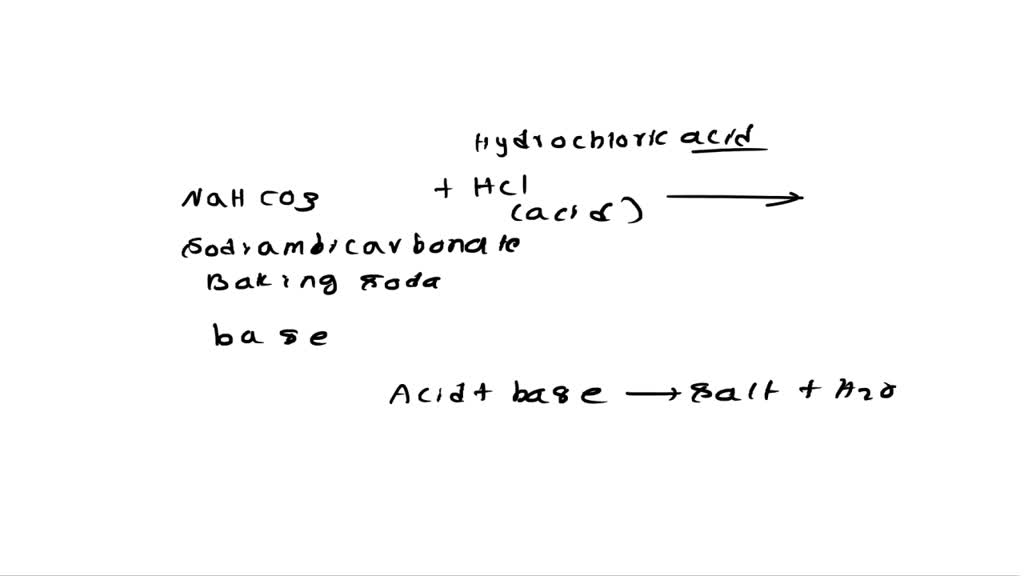 Hydrochloric acid
NaHCO3 + HCl →
(acid)
Sodiambicarbonate
Baking soda
base
Acid + base → salt + H2O